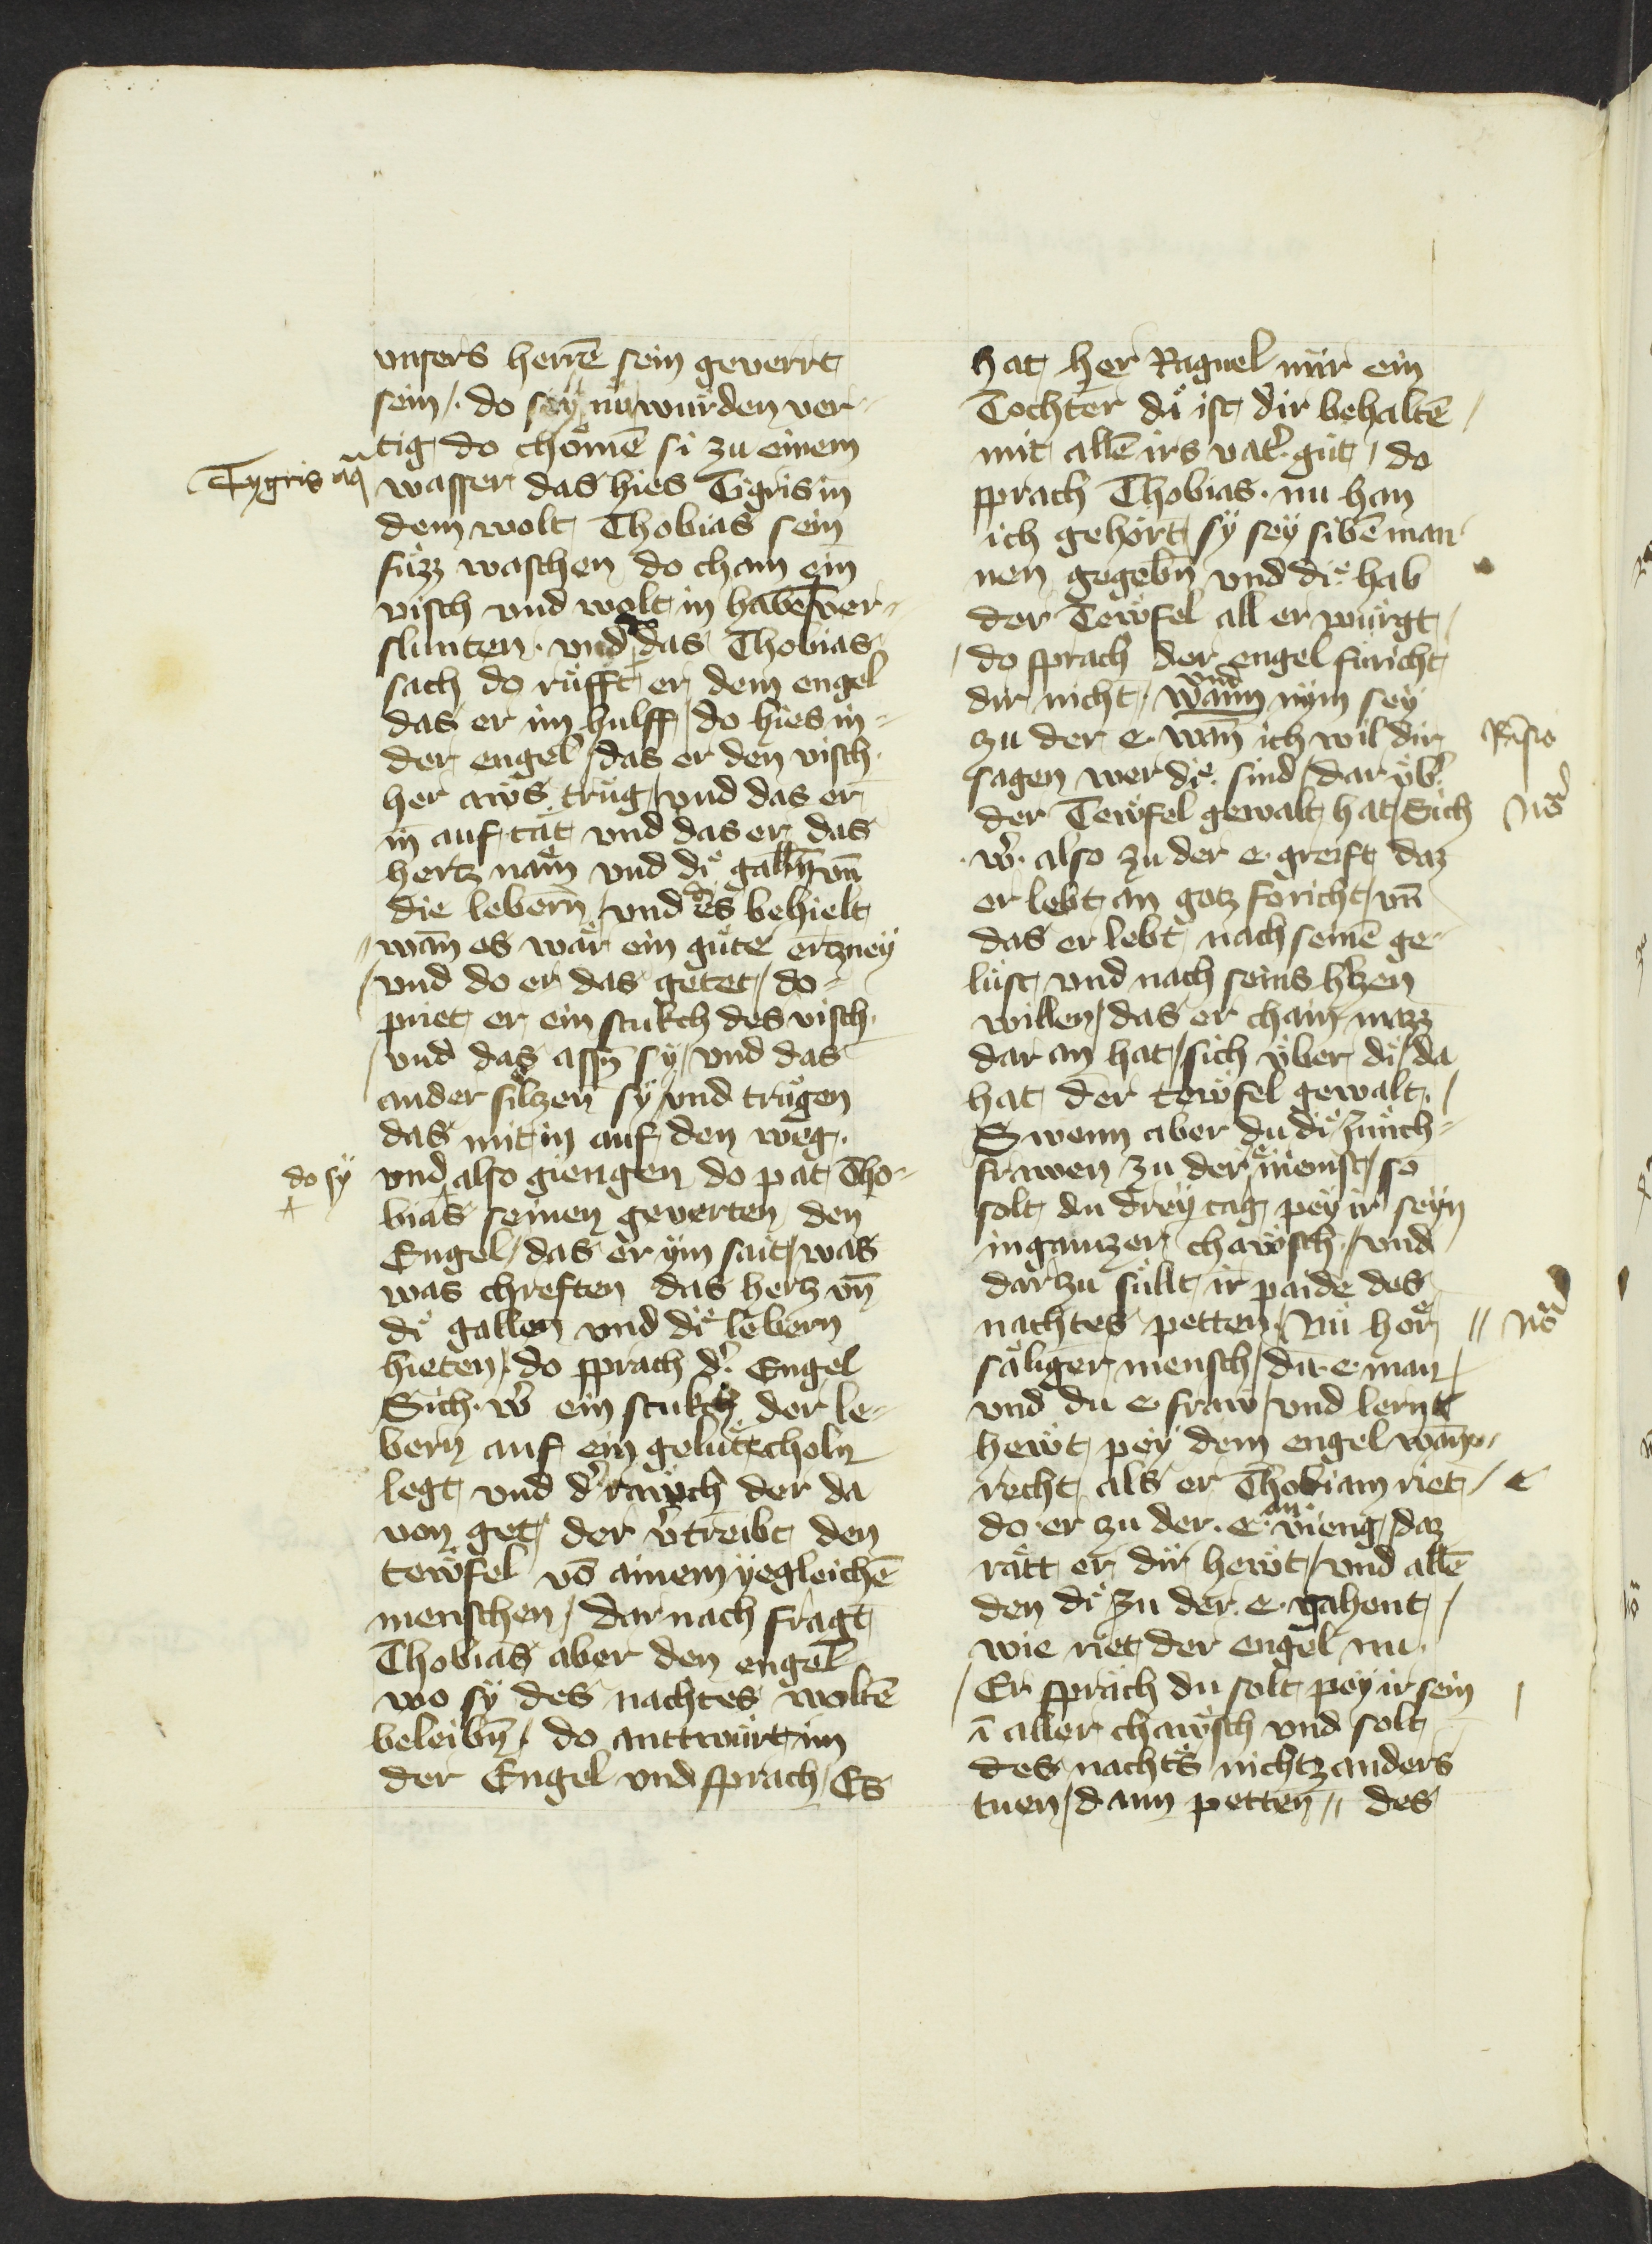 vnsers herrē sein geverrt
sein /. do sey nu wurden ver-
tig do chomē si zu einem
Tygris aq
wasser das hies Tigris in
dem wolt Thobias sein
fuͤzz waschen do cham ein
visch vnd wolt in haben ver-
slunten · vnd do das Thobias
sach do ruͤfft er dem engel
das er im hulff / do hies in
der engel / das er den visch
her aws trug / vnd das er
in auf tät vnd das er das
hertz nam vnd di galln vn̄
die lebern / vnd es behielt
wan̄ es wär ein guͤte ertzney
/ vnd do er das getet / do
priet er ein stukch des visch
/ vnd das assn̄ sy / vnd das
ander silczen sy / vnd truͤgen
das mit in auf den weg .
do sy
vnd also giengen do pat Tho-
bias seinen geverten den
Engel / das er ym sait / was
was chreften das hertz vn̄
di gallen vnd di lebern
hieten / do sprach d' Engel
Sich · w' ein stukch der le-
bern auf ein gelutecholn
legt vnd d' rauch der da
von get / der v'treibt den
tewfel vō ainem yegleichē
menschen / dar nach fragt
Thobias aber den engel
wo sy des nachtes woltē
beleibn̄ / do anttwurt im
der Engel vnd sprach / Es
hat her Raguel nur ein
Tochter di ist dir behaltē /
mit allē irs vat' gut / do
sprach Thobias · nu han
ich gehört sy sey sibē man
nen gegebn̄ vnd di hab
der Tewfel all er wurgt /
/ do sprach der engel furicht
dir nicht / vnd wann nym sey
zu der e wan̄ ich wil dir
sagen wer di sind / dar vb'
der Tewfel gewalt hat / Sich
Nō
· w' · also zu der e greift daz
er lebt an gotz foricht / vn̄
das er lebt nach seinē ge-
luͤst vnd nach seins h'tzen
willen / das er chain mazz
dar an hat / sich vber di / da
hat der tewfel gewalt · /
Swenn aber du di Junch-
frawen zu der e nemst / so
solt du drey tag pey ir seyn
in gantzer chawsch / vnd
dar zu suͤllt ir paide des
nachtes petten / Nu hör //
Nō
säliger mensch / du e man /
vnd du e fraw / vnd lernt
hewt pey dem engel wan̄
recht als er Thobiam riet /
do er zu der e an vieng / daz
rätt er dir hewt / vnd allē
den di zu der e gahent /
wie riet der engel nu ·
/ Er sprach du solt pey ir sein /
ī aller chawsch vnd solt
des nachts nichtz anders
tuen / dann petten // des